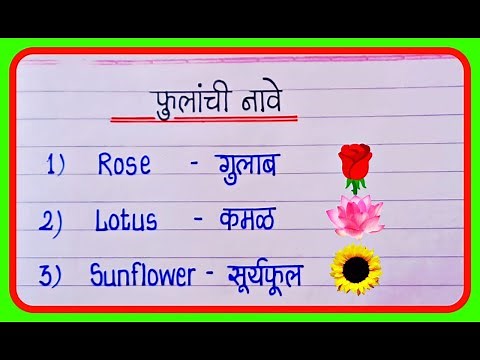 फुलांची नावे
1) Rose - गुलाब
2) Lotus - कमळ
3) Sunflower - सूर्यफूल